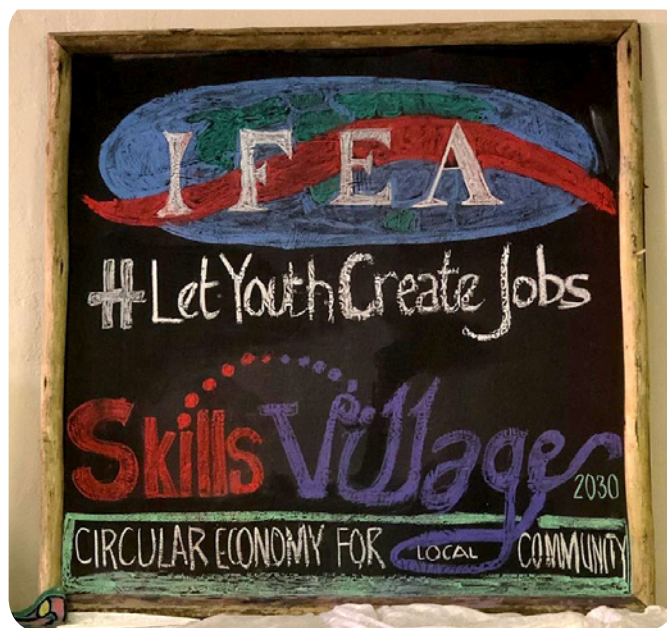 IFEA
#LetYouthCreateJobs
Skills Village
2030
CIRCULAR ECONOMY FOR LOCAL COMMUNITY